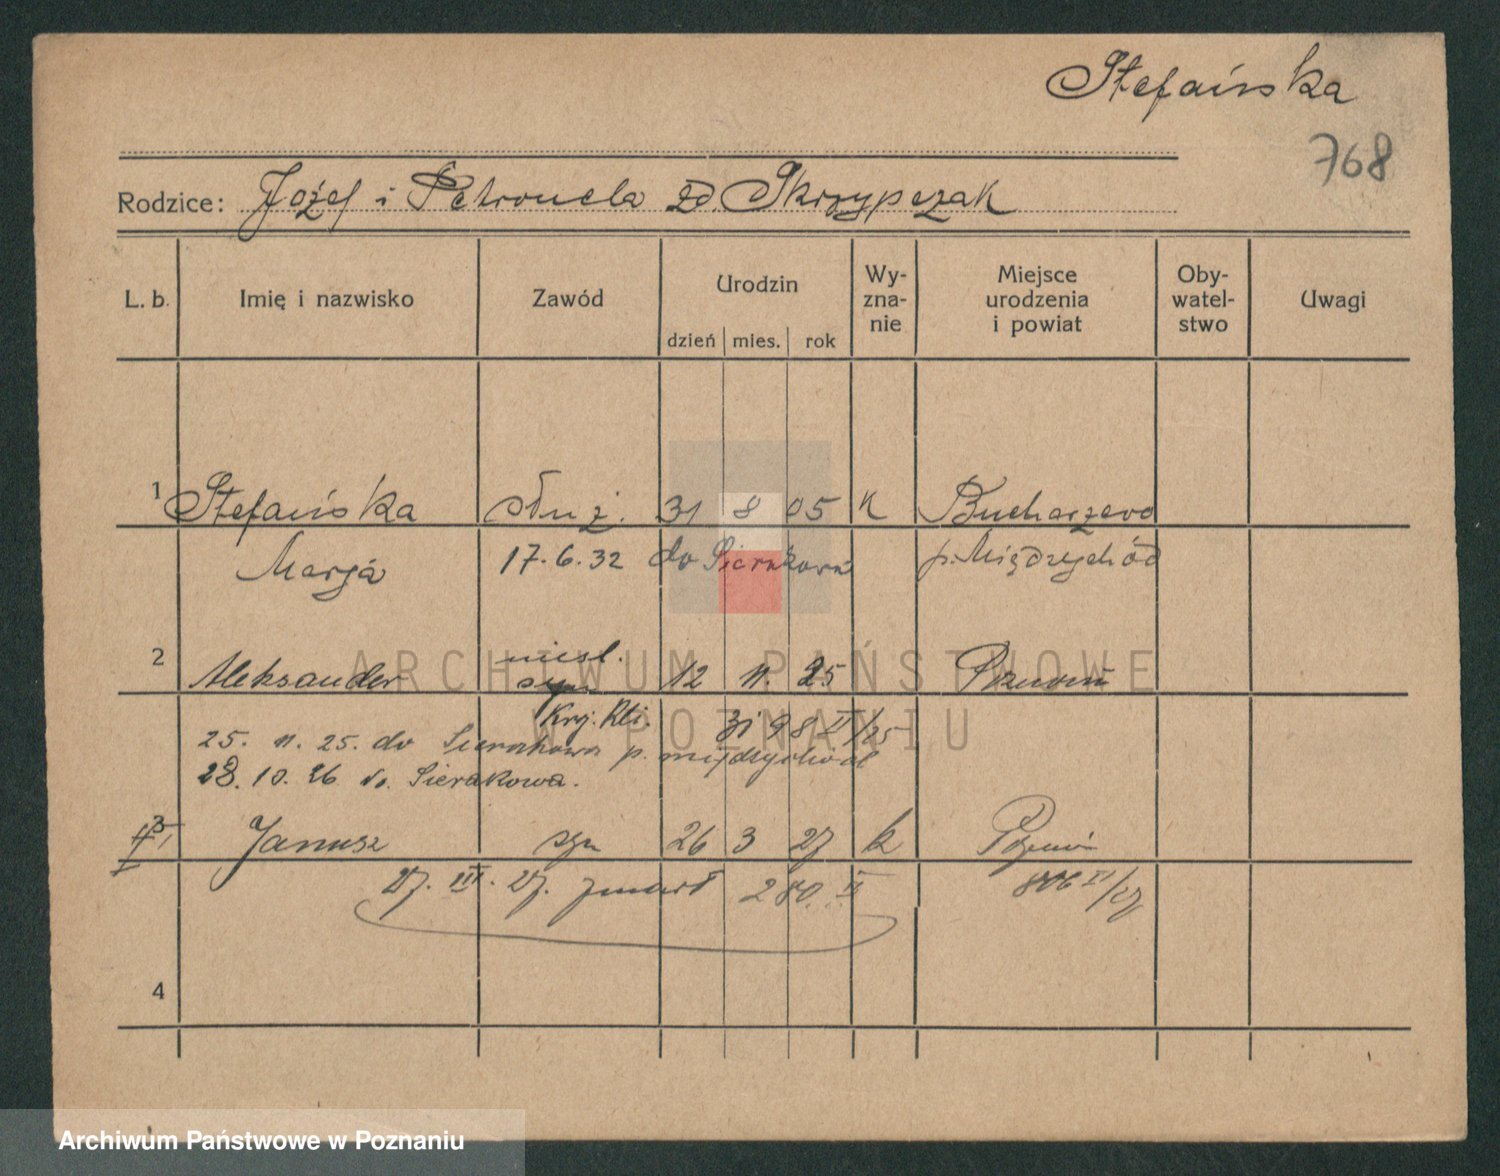 Stefańska
768
Rodzice: Józef i Petronela zd. Skrzypczak
L. b. Imię i nazwisko Zawód Urodzin dzień mies. rok Wy-zna-nie Miejsce urodzenia i powiat Oby-watel-stwo Uwagi
1 Stefańska służ. 31 8 05 k Bucharzewo
Marja 17.6.32 do Sierakowa p. Międzychód
2 Aleksander nieśl. syn 12 11. 25 Poznań
25. 11. 25. do Sierakowa p. międzychód
28. 10. 26 do. Sierakowa.
3 Janusz syn 26 3 27 k Poznań
27. III. 27. zmarł 280. II
4
ARCHIWUM PAŃSTWOWE
W POZNANIU
Archiwum Państwowe w Poznaniu